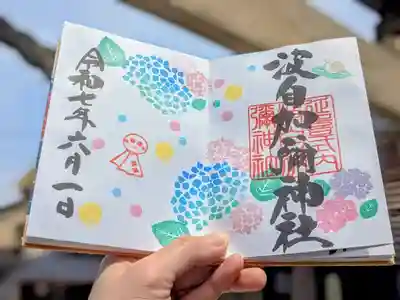 波自加彌神社
延喜式内
彌神社
令和七年六月一日